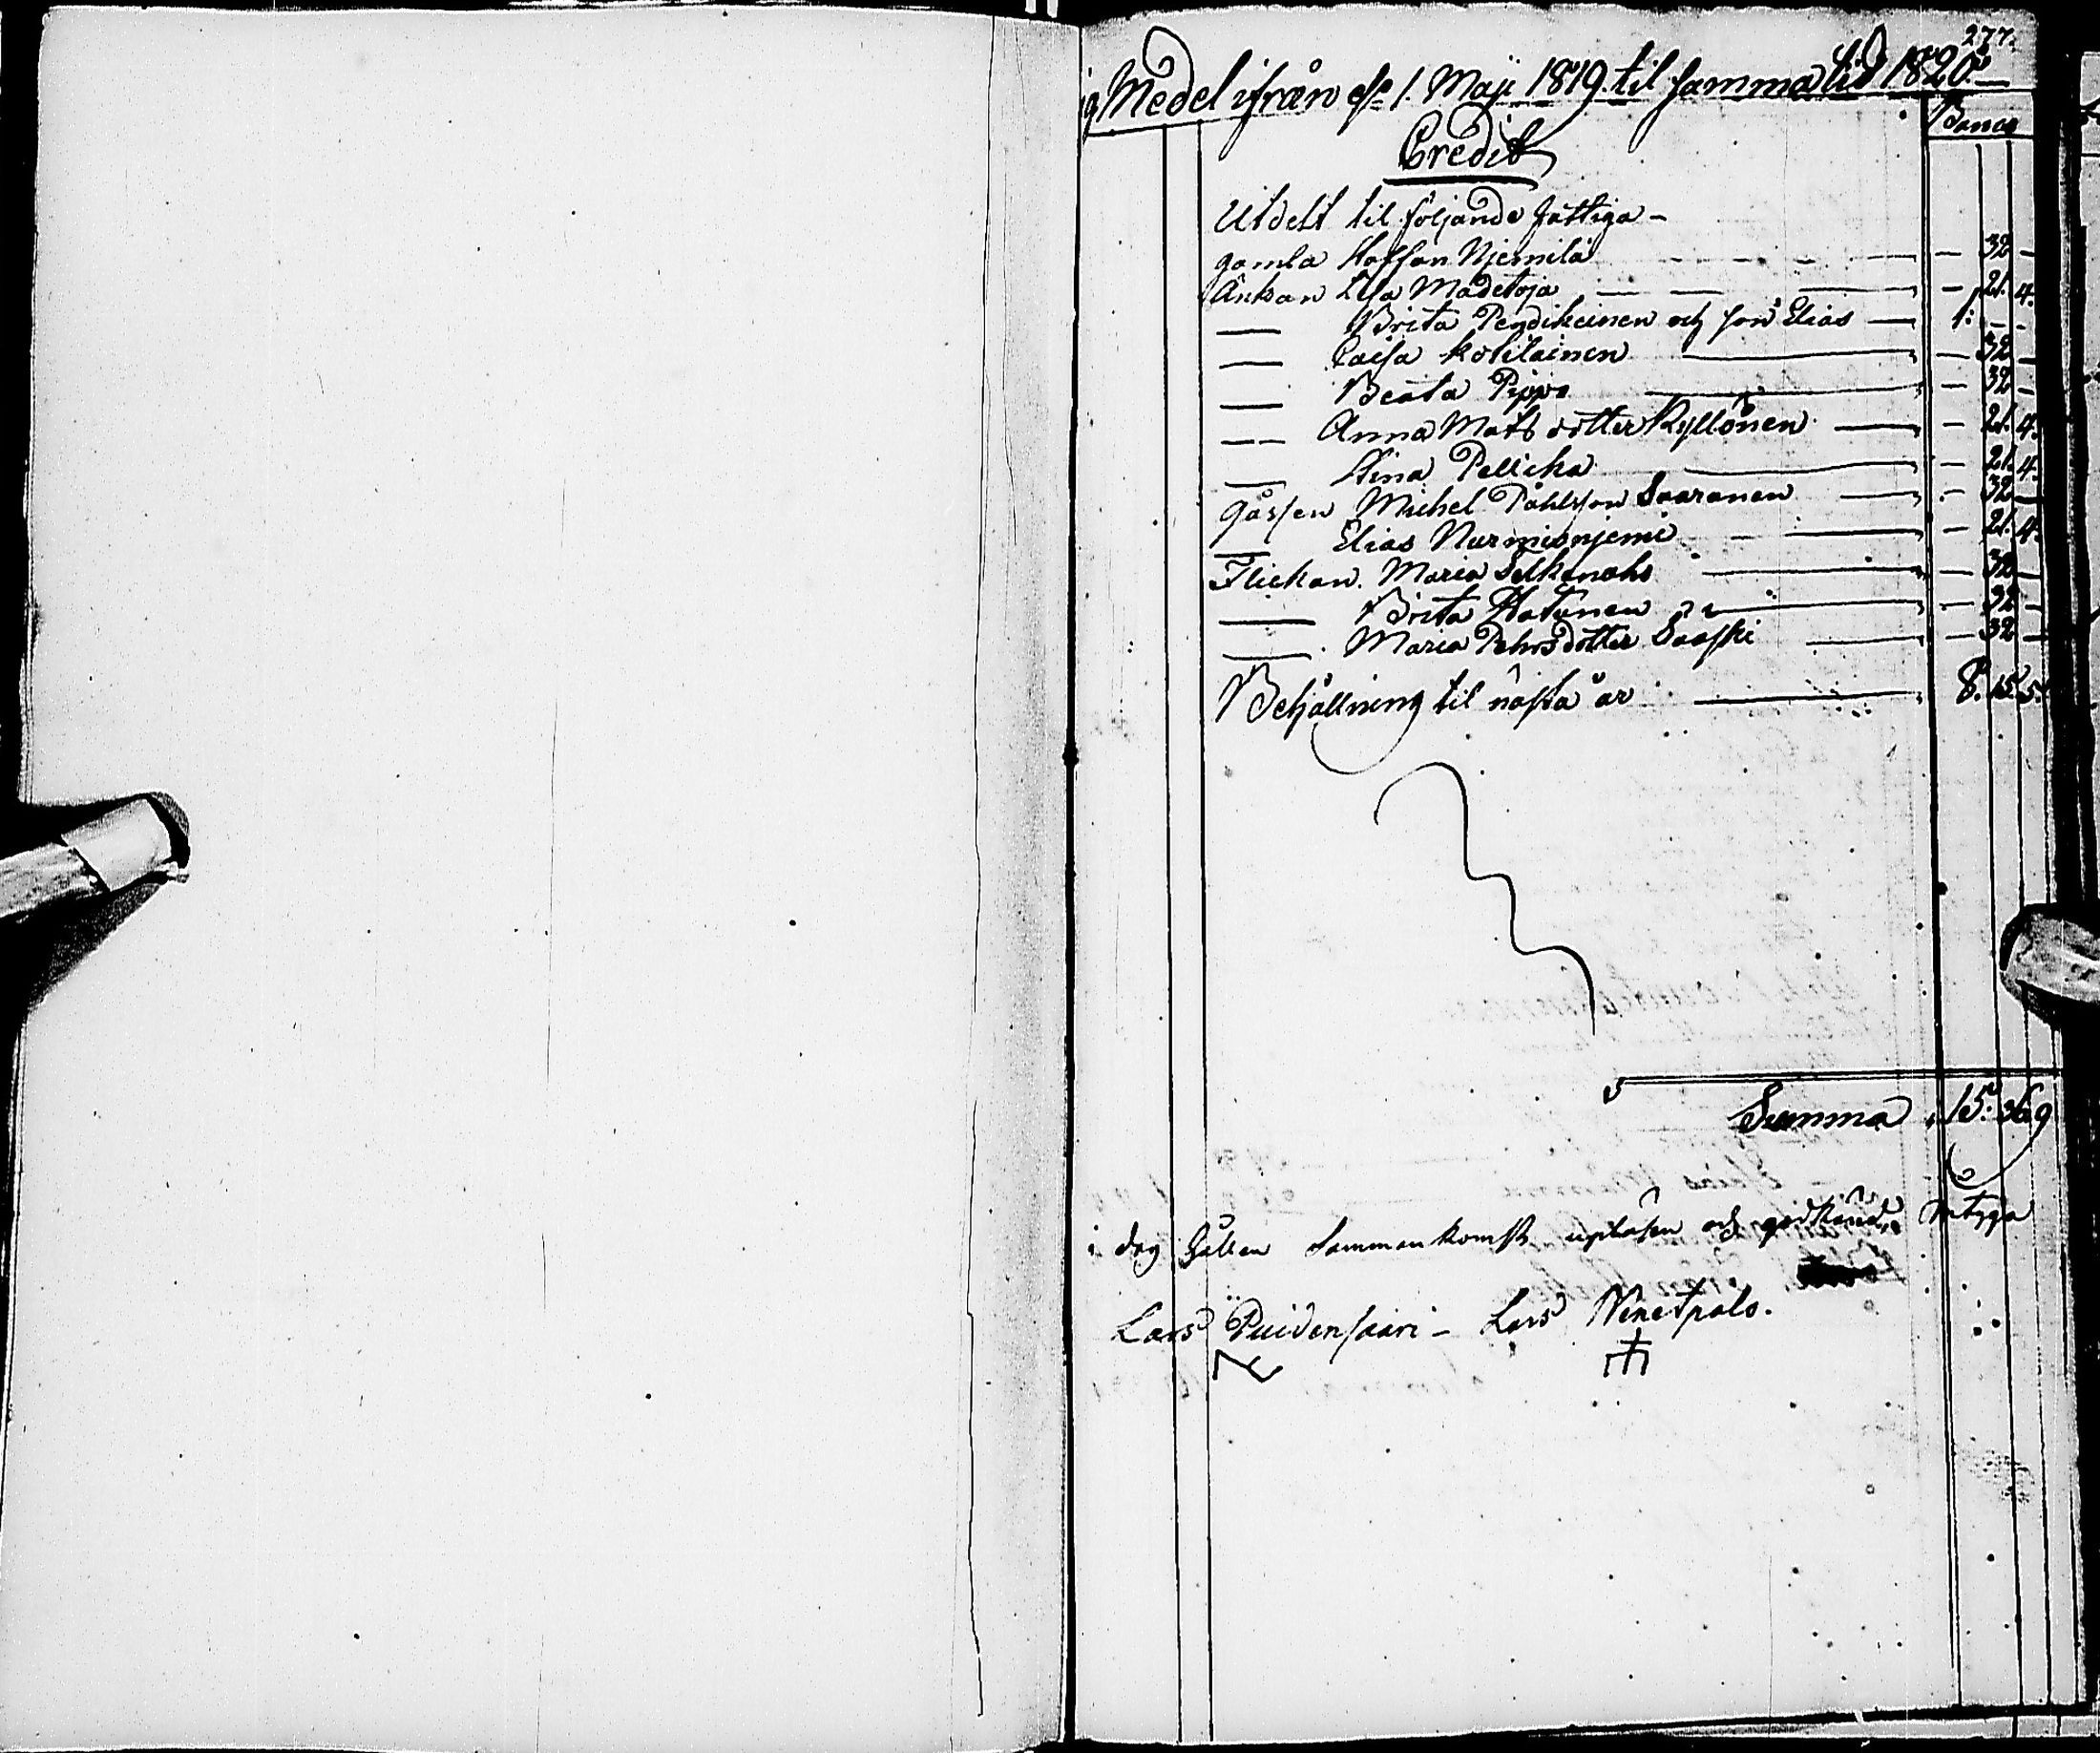 277.
Medel ifrån d. 1. Maji 1819. til samma tid 1820.
Banco
Credit
Utdelt til följande fattiga -
gamla Staffan Njemilä — 32 -
Änkan Lisa Madetoja — 21. 4.
— Brita Pendikeinen och son Elias — 1: - -
— Caisa Kotilainen — 32 -
— Beata Pippo — 32 -
— Anna Mats dotter Kyllönen — 21. 4.
— Stina Pellicka — 21. 4.
gåssen Michel Påhlsson Saaranen — 32 -
— Elias Nurmisnjemi — 21. 4.
Flickan Maria Selkänaho — 32 -
— Brita Hatunen — 32 -
— Maria Pehrsdotter Sääski — 32 -
Behållning til nästa år — 8. 15. 5.
Summa 15: 36 9
i dag hållen sammankomst upläsen och godkänd, intyga
Lars Puidensaari - Lars Wenetpalo.